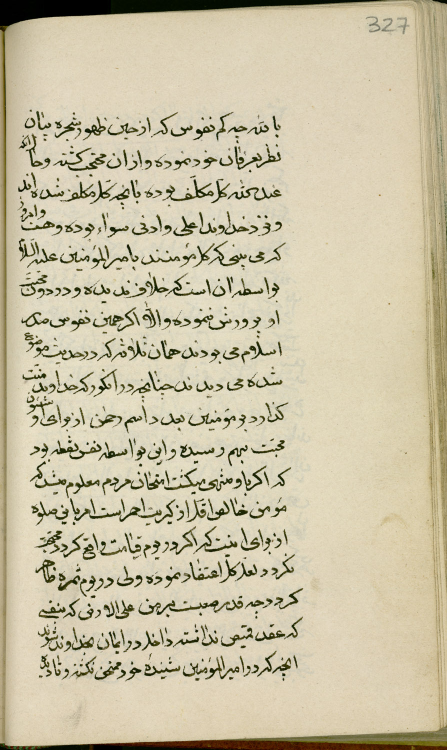 327
بالله چه کم نفوس که از حین ظهور شجره بیان
نظر بعرفان خود نموده و از ان محتجب گشته و حال آنکه
عند الله کل مکلف بوده بانچه کل مکلف شده اند
و نزد خداوند اعلی و ادنی سواء بوده و هست و امروز
که می بینی که کل مومنند بامیر المؤمنین علیه السلام
بواسطه ان است که خلاف ندیده و در دون محبت
او پرورش ننموده و الا اگر همین نفوس صدر
اسلام می بودند همان ثلاثه که در حدیث موضوع
شده می دیدند چنانچه در انکور که خداوند منت
گذارد بر مؤمنین بعد د اسم رحمن از برای او شئون
محبت بهم رسیده و این بواسطه نفس نقطه بود
که اگر باو منتهی میگشت امتحان مردم معلوم میشد که
مؤمن خالص اقل از کبریت احمر است امر باین صلوة
از برای اینست که اگر در یوم قیامت واقع گردد محتجب
نگردد لعل کل اعتقاد نموده ولی در یوم ثمره ظاهر
گردد چه قدر صعبت میزمن علی الارض که بنفسی
که عقد قمیص نداشته داخل در ایمان بخداوند شوند
انچه که در امیر المؤمنین شنیده خود ممتحن نگشته و نادیده